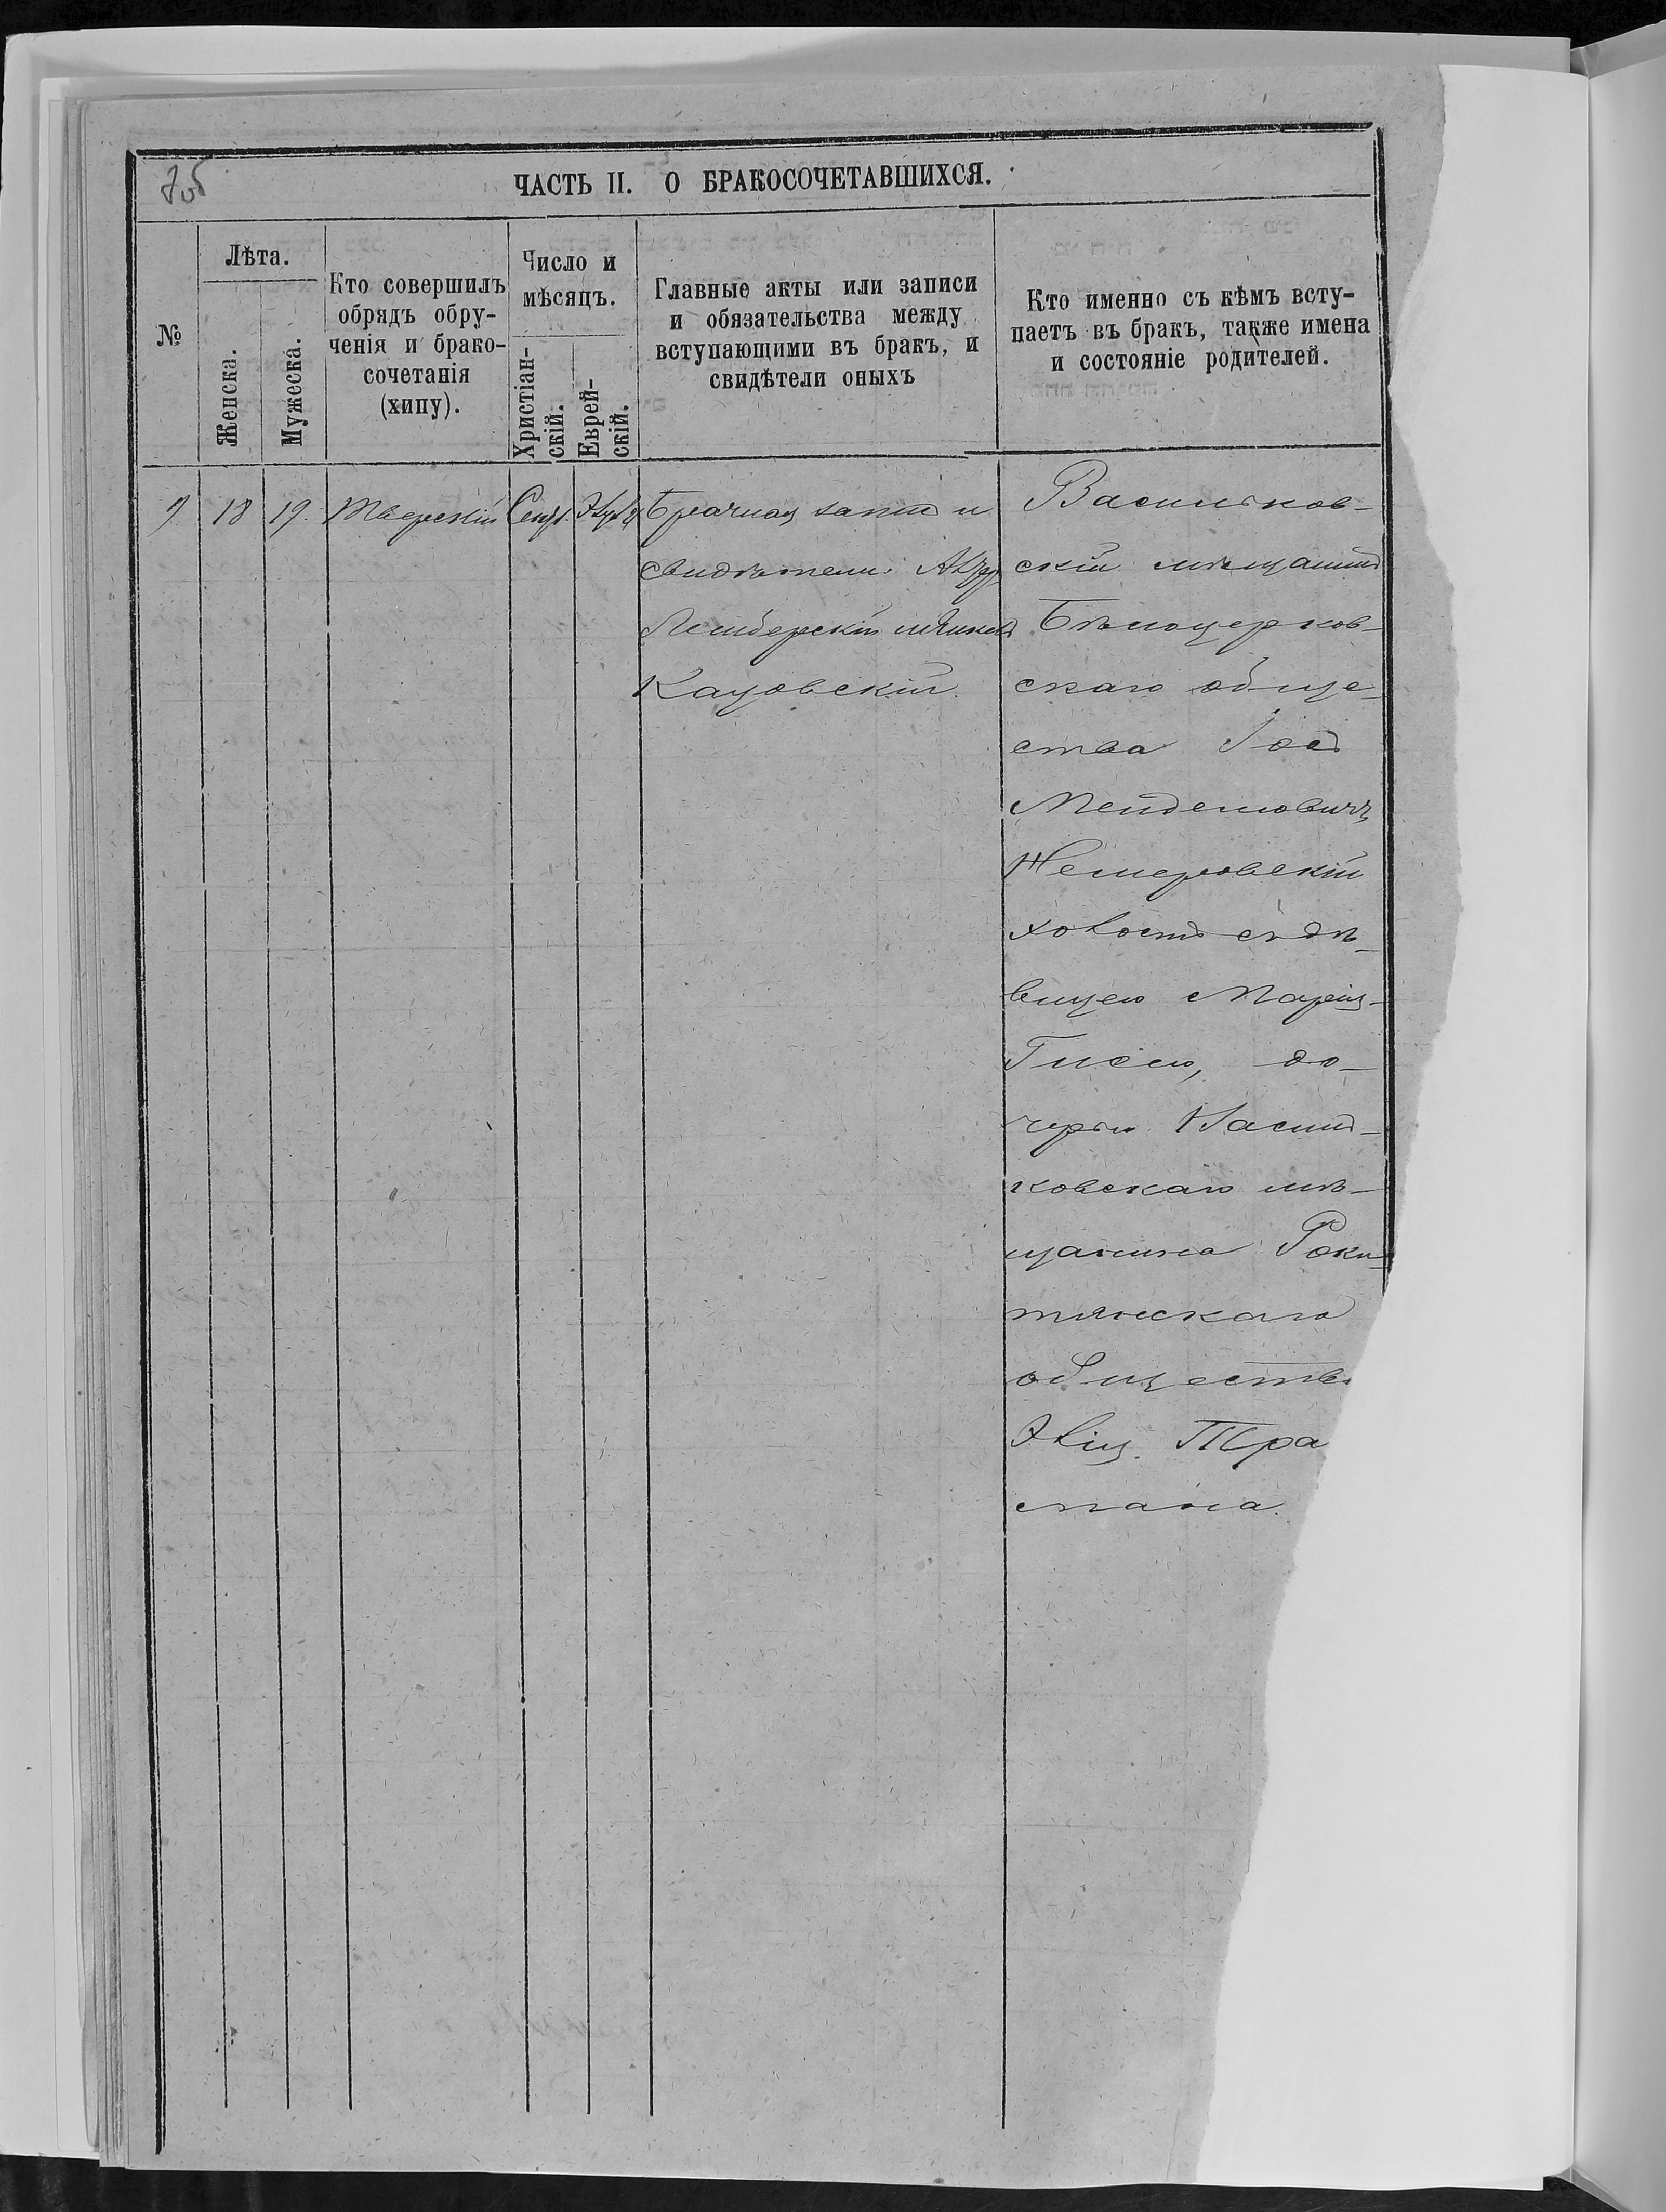 ЧАСТЬ II. О БРАКОСОЧЕТАВШИХСЯ.
№
Лѣта.
Женска.
Мужеска.
Кто совершилъ
обрядъ обру-
ченія и брако-
сочетанія
(хипу).
Число и
мѣсяцъ.
Христіан-
скій.
Еврей-
скій.
Главные акты или записи
и обязательства между
вступающими въ бракъ, и
свидѣтели оныхъ
Кто именно съ кѣмъ всту-
паетъ въ бракъ, также имена
и состояніе родителей.
18 19. Тверскій
Брачная запись и
свидѣтели:
Кацовскій.
Васильков-
скій мѣщанинъ
Бѣлоцерков-
скаго обще-
ства Іосъ
Менделевичъ
Немеровскій
холостъ съ дѣ-
вицею Марія-
Гисею, до-
черью Василь-
ковскаго мѣ-
щанина Роки-
тянскаго
обществ
Тра
смана.